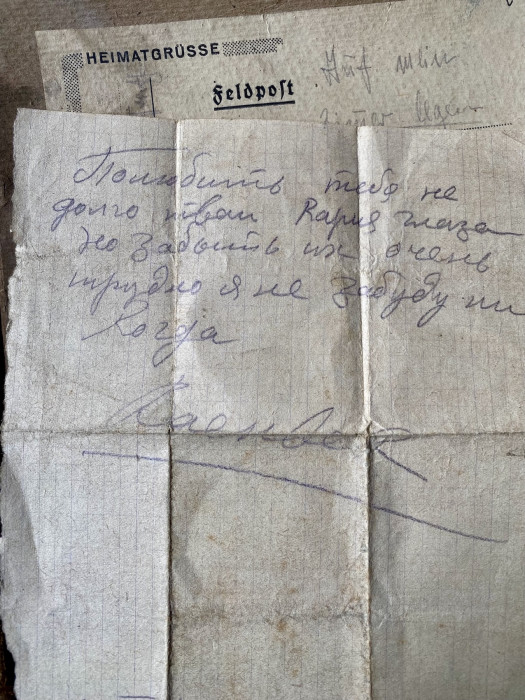 HEIMATGRÜSSE
Feldpost
Auf mein
Полюбить тебя не
долго твои Кария глаза
но забыть их очень
трудно я не забуду ни
Когда